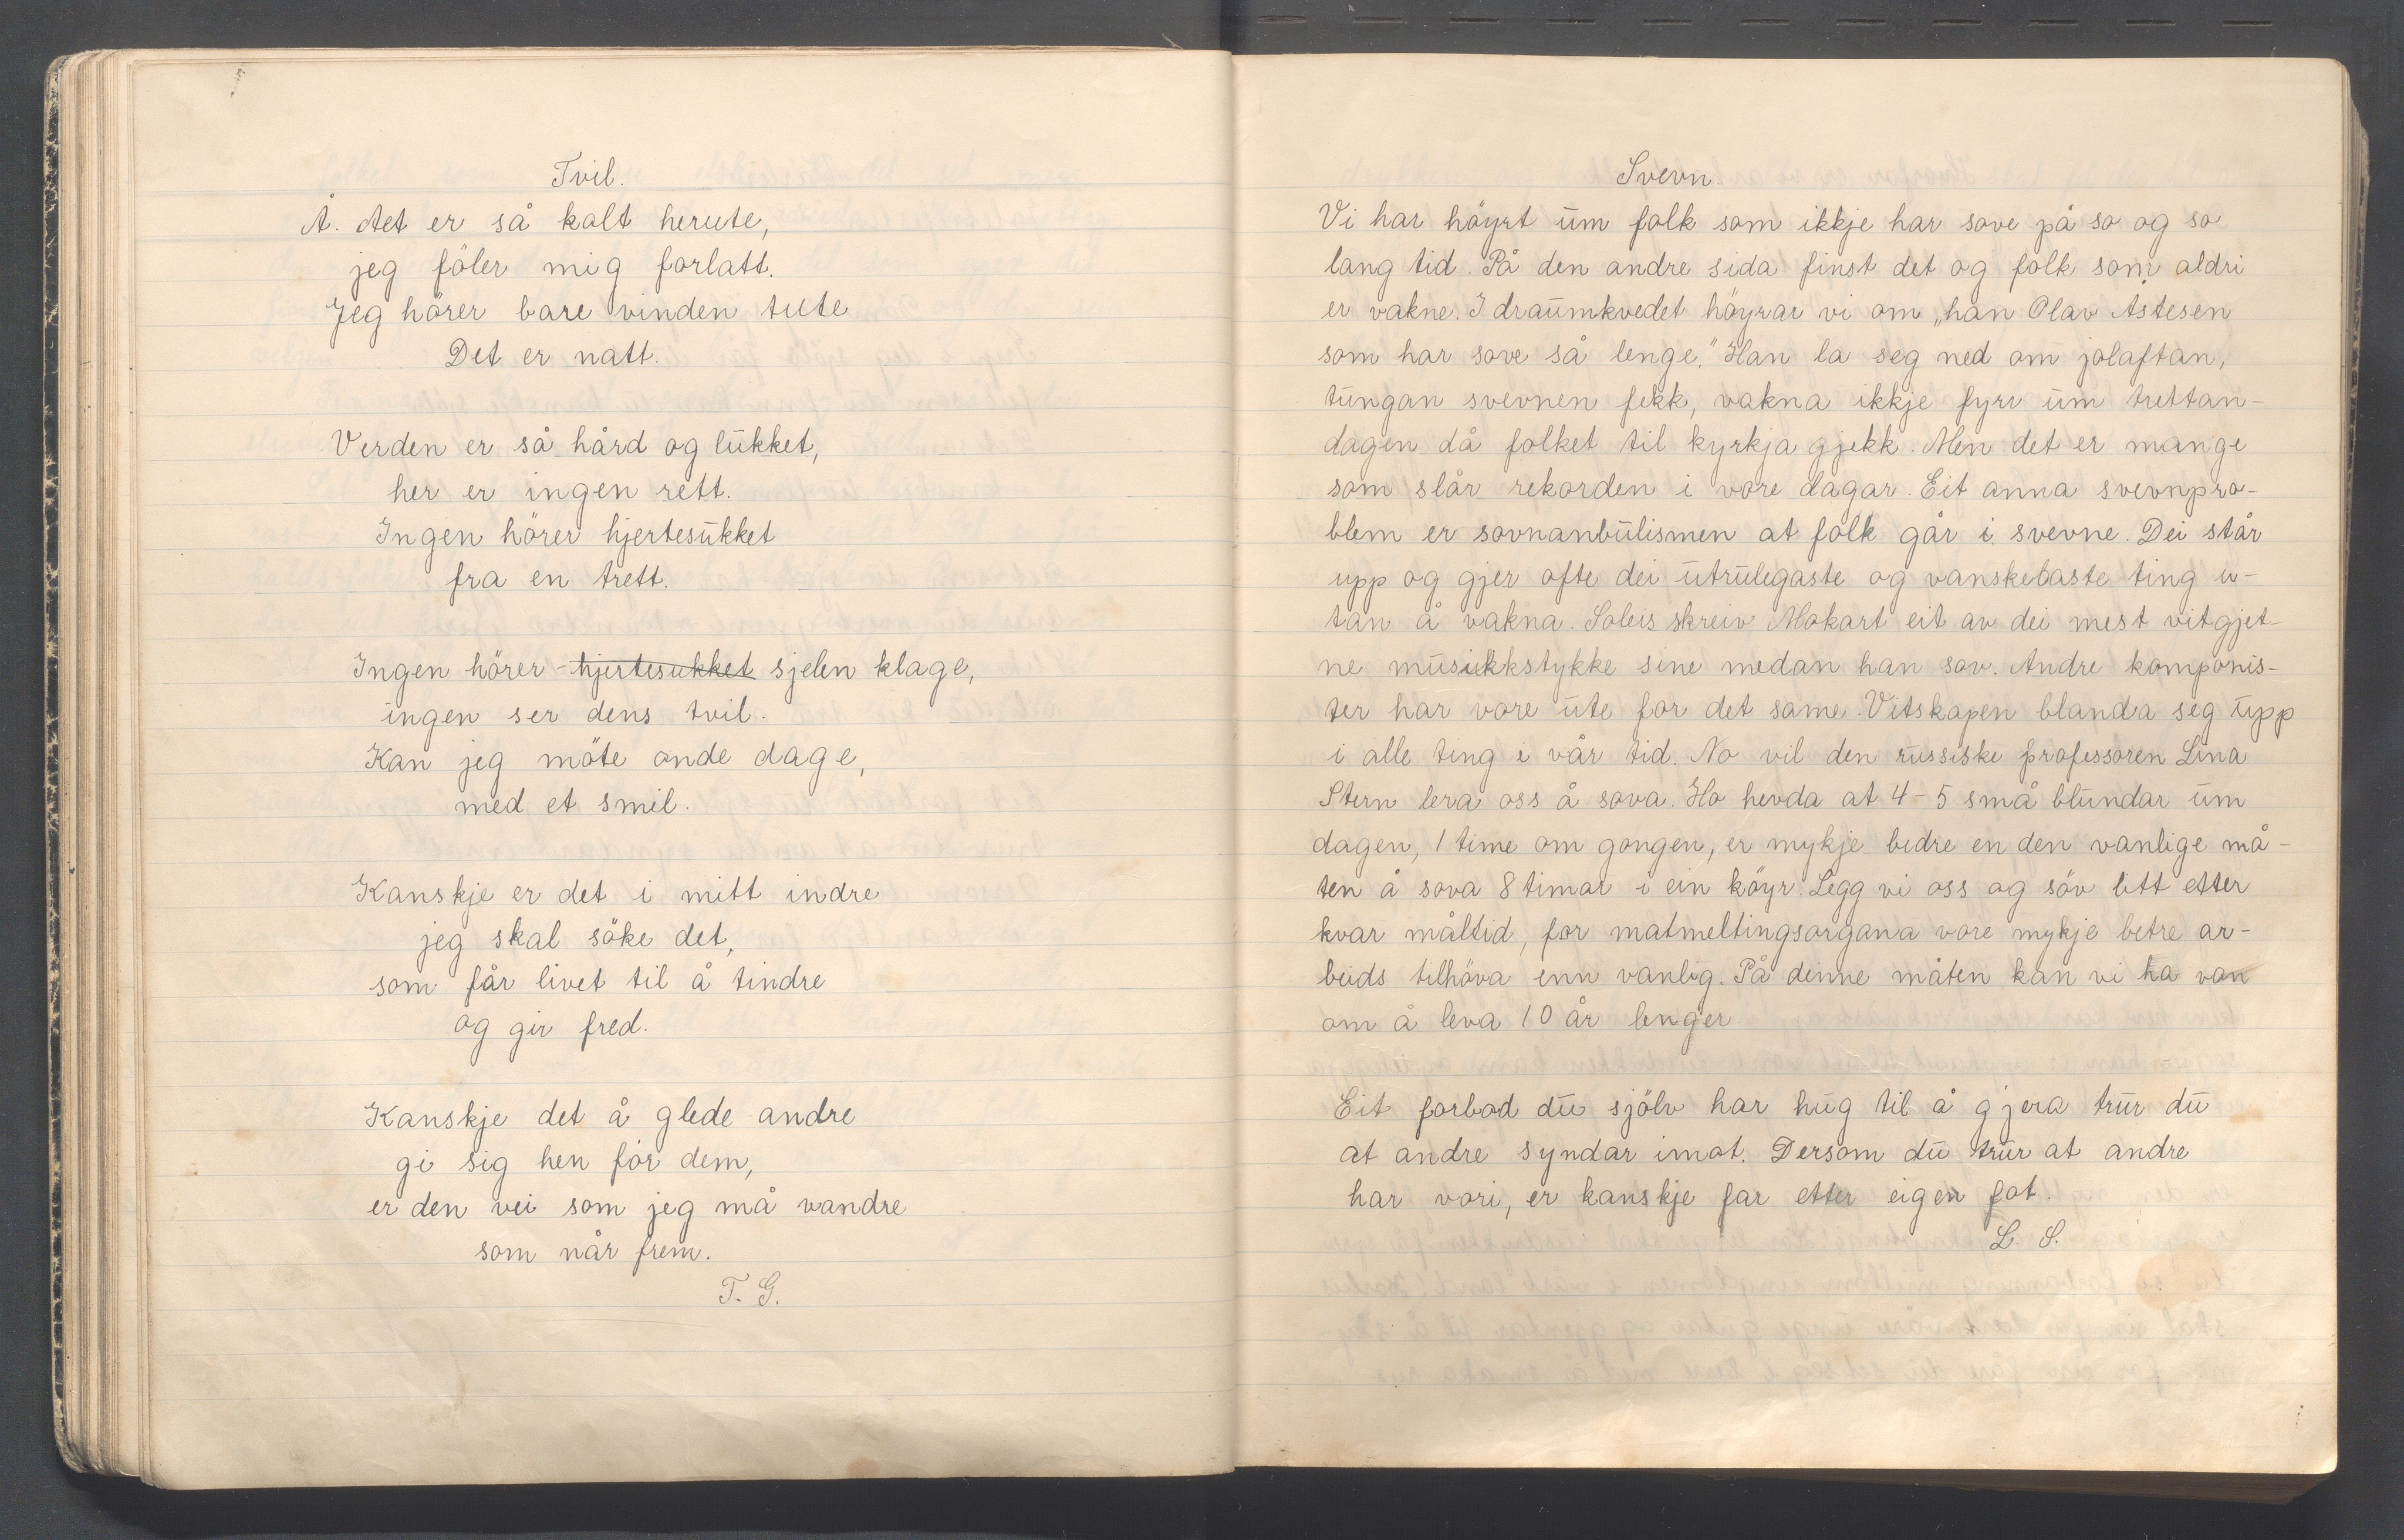 Tvil.
Å. det er så kalt herute,
jeg föler mig forlatt.
Jeg hörer bare vinden tute
Det er natt.
Verden er så hård og lukket,
her er ingen rett.
Ingen hörer hjertesukket
fra en trett.
Ingen hörer hjertesukket sjelen klage,
ingen ser dens tvil.
Kan jeg möte onde dage,
med et smil.
Kanskje er det i mitt indre
jeg skal söke det,
som får livet til å tindre
og gir fred.
Kanskje det å glede andre
gi sig hen for dem,
er den vei som jeg må vandre
som når frem.
T. G.
Svevn.
Vi har höyrt um folk som ikkje har sove på so og so
lang tid. På den andre sida finst det og folk som aldri
er vakne. I draumkvedet höyrar vi om „han Olav Åstesen
som har sove så lenge." Han la seg ned om jolaftan,
tungan svevnen fekk, vakna ikkje fyrr um trettan-
dagen då folket til kyrkja gjekk. Men det er mange
som slår rekorden i vore dagar. Eit anna svevnpro-
blem er sovnanbulismen at folk går i svevne. Dei står
upp og gjer ofte dei utrulegaste og vanskebaste ting u-
tan å vakna. Soleis skreiv Mokart eit av dei mest vitgjet-
ne musikkstykke sine medan han sov. Andre komponis-
ter har vore ute for det same. Vitskapen blanda seg upp
i alle ting i vår tid. No vil den russiske professoren Lina
Stern lera oss å sova. Ho hevda at 4-5 små blundar um
dagen, 1 time om gongen, er mykje bedre en den vanlige må-
ten å sova 8 timar i ein köyr. Legg vi oss og söv litt etter
kvar måltid, for matmeltingsorgana vore mykje betre ar-
beids tilhöva enn vanlig. På denne måten kan vi ha von
om å leva 10 år lenger
Eit forbod du sjölv har hug til å gjera trur du
at andre syndar imot. Dersom du trur at andre
har vori, er kanskje far etter eigen fot.
L. S.